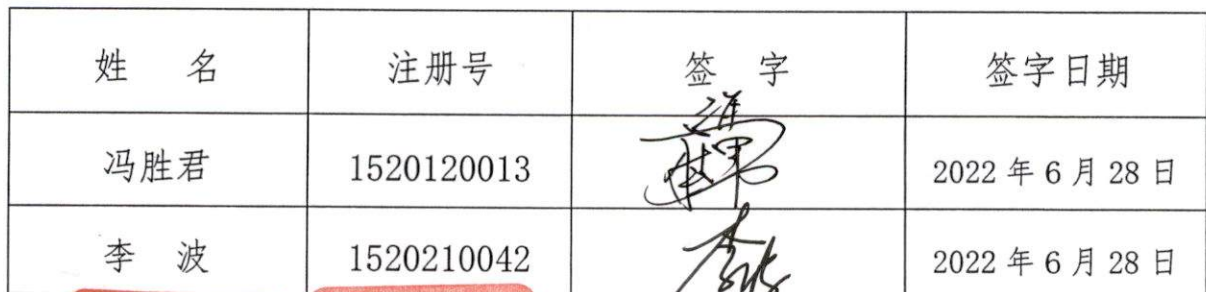 姓 名 注册号 签 字 签字日期
冯胜君 1520120013 2022 年 6 月 28 日
李 波 1520210042 2022 年 6 月 28 日